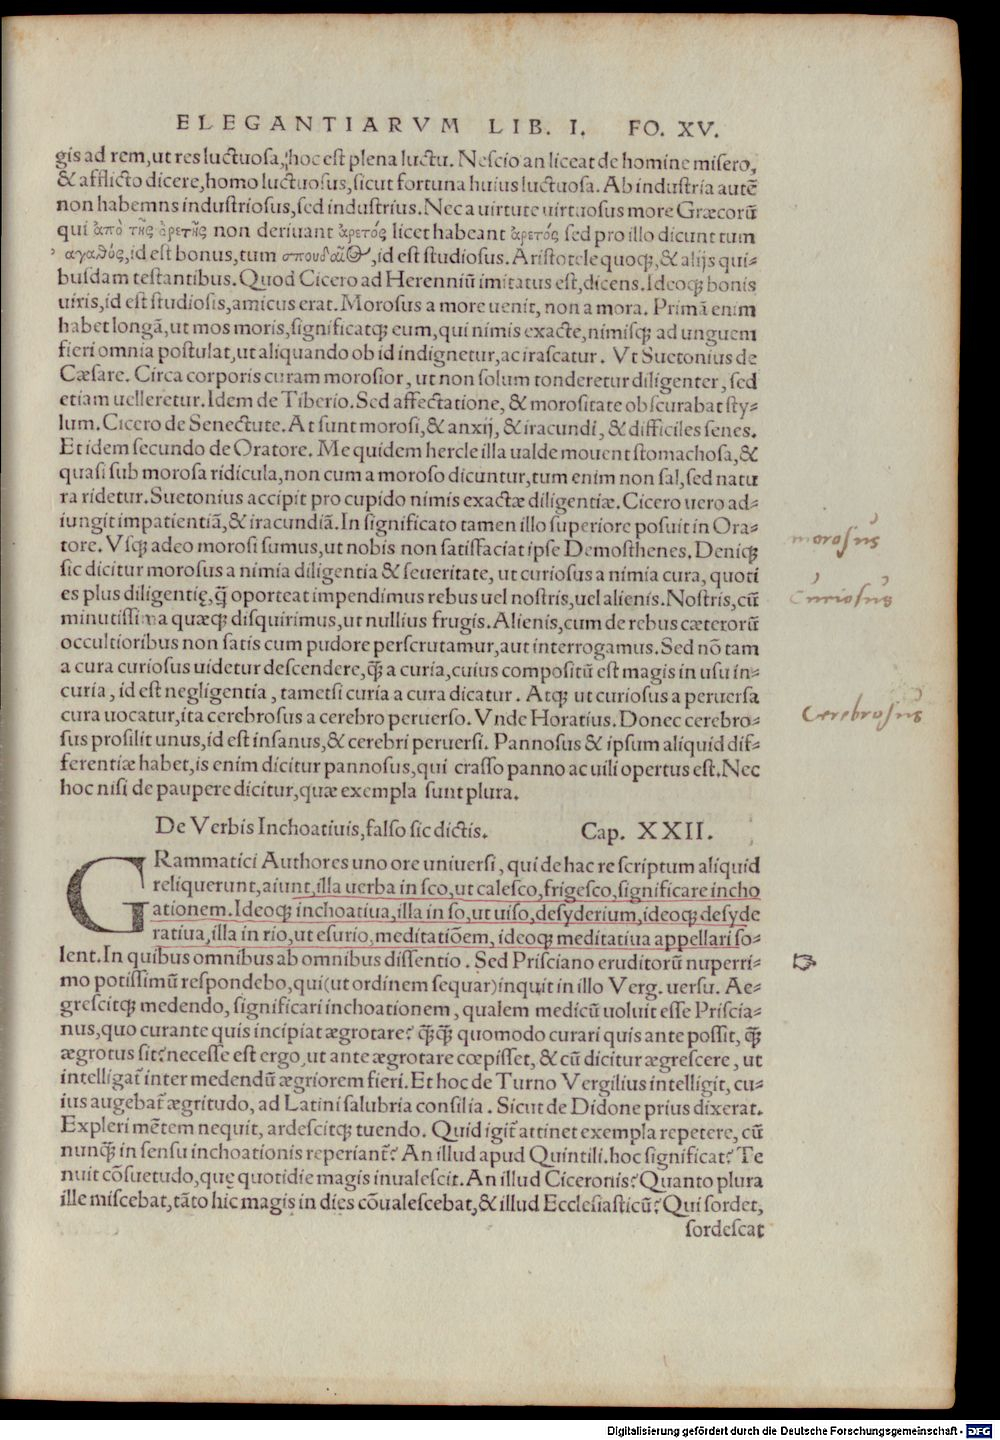 ELEGANTIARVM LIB. I. FO. XV.
gis ad rem, ut res luctuosa, hoc est plena luctu. Nescio an liceat de homine misero,
& afflicto dicere, homo luctuosus, sicut fortuna huius luctuosa. Ab industria autē
non habemns industriosus, sed industrius. Nec a uirtute uirtuosus more Græcorū
qui ἀπὸ τῆς ἀρετῆς non deriuant ἀρετός licet habeant ἀρετός sed pro illo dicunt tum
αγαθός, id est bonus, tum σπουδαῖος, id est studiosus. Aristotele quoqꝫ, & alijs qui-
busdam testantibus. Quod Cicero ad Herenniū imitatus est, dicens. Ideoqꝫ bonis
uiris, id est studiosis, amicus erat. Morosus a more uenit, non a mora. Primā enim
habet longā, ut mos moris, significatqꝫ eum, qui nimis exacte, nimisqꝫ ad unguem
fieri omnia postulat, ut aliquando ob id indignetur, ac irascatur. Vt Suetonius de
Cæsare. Circa corporis curam morosior, ut non solum tonderetur diligenter, sed
etiam uelleretur. Idem de Tiberio. Sed affectatione, & morositate obscurabat sty-
lum. Cicero de Senectute. At sunt morosi, & anxij, & iracundi, & difficiles senes.
Et idem secundo de Oratore. Me quidem hercle illa ualde mouent stomachosa, &
quasi sub morosa ridicula, non cum a moroso dicuntur, tum enim non sal, sed natu
ra ridetur. Suetonius accipit pro cupido nimis exactæ diligentiæ. Cicero uero ad-
iungit impatientiā, & iracundiā. In significato tamen illo superiore posuit in Ora-
tore. Vsqꝫ adeo morosi sumus, ut nobis non satisfaciat ipse Demosthenes. Deniqꝫ
sic dicitur morosus a nimia diligentia & seueritate, ut curiosus a nimia cura, quoti
es plus diligentię, q̄ oporteat impendimus rebus uel nostris, uel alienis. Nostris, cū
minutissima quæqꝫ disquirimus, ut nullius frugis. Alienis, cum de rebus cæterorū
occultioribus non satis cum pudore perscrutamur, aut interrogamus. Sed nō tam
a cura curiosus uidetur descendere, q̄ꝫ a curia, cuius compositū est magis in usu in-
curia, id est negligentia, tametsi curia a cura dicatur. Atqꝫ ut curiosus a peruersa
cura uocatur, ita cerebrosus a cerebro peruerso. Vnde Horatius. Donec cerebro-
sus prosilit unus, id est insanus, & cerebri peruersi. Pannosus & ipsum aliquid dif-
ferentiæ habet, is enim dicitur pannosus, qui crasso panno ac uili opertus est. Nec
hoc nisi de paupere dicitur, quæ exempla sunt plura.
morosus
Curiosus
Cerebrosus
De Verbis Inchoatiuis, falso sic dictis. Cap. XXII.
GRammatici Authores uno ore uniuersi, qui de hac re scriptum aliquid
reliquerunt, aiunt, illa uerba in sco, ut calesco, frigesco, significare incho
ationem. Ideoqꝫ inchoatiua, illa in so, ut uiso, desyderium, ideoqꝫ desyde
ratiua, illa in rio, ut esurio, meditatiōem, ideoqꝫ meditatiua appellari so-
lent. In quibus omnibus ab omnibus dissentio. Sed Prisciano eruditorū nuperri-
mo potissimū respondebo, qui (ut ordinem sequar) inquit in illo Verg. uersu. Ae-
grescitqꝫ medendo, significari inchoationem, qualem medicū uoluit esse Priscia-
nus, quo curante quis incipiat ægrotare? q̄ꝫq̄ꝫ quomodo curari quis ante possit, q̄ꝫ
ægrotus sit? necesse est ergo, ut ante ægrotare cœpisset, & cū dicitur ægrescere, ut
intelligat̄ inter medendū ægriorem fieri. Et hoc de Turno Vergilius intelligit, cu-
ius augebat̄ ægritudo, ad Latini salubria consilia. Sicut de Didone prius dixerat.
Expleri mētem nequit, ardescitqꝫ tuendo. Quid igit̄ attinet exempla repetere, cū
nunq̄ꝫ in sensu inchoationis reperiant̄? An illud apud Quintili. hoc significat? Te
nuit cōsuetudo, quę quotidie magis inualescit. An illud Ciceronis? Quanto plura
ille miscebat, tāto hic magis in dies cōualescebat, & illud Ecclesiasticū? Qui sordet,
sordescat
Digitalisierung gefördert durch die Deutsche Forschungsgemeinschaft - DFG